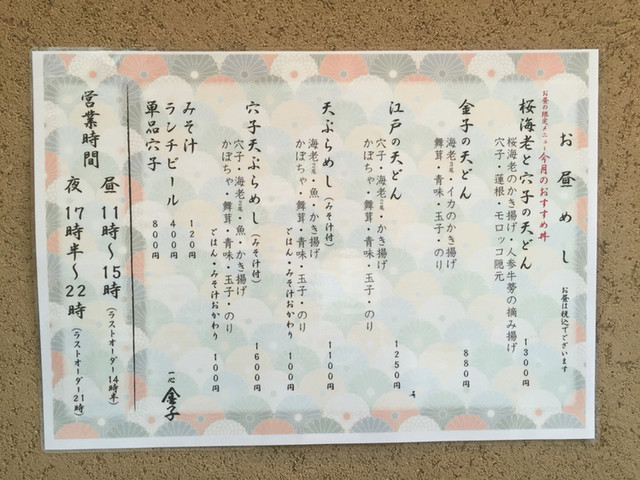 お昼めし
お昼は税込でございます
お昼の限定メニュー今月のおすすめ丼
桜海老と穴子の天どん
桜海老のかき揚げ・人参牛蒡の摘み揚げ
穴子・蓮根・モロッコ隠元
1300円
金子の天どん
海老二尾・イカのかき揚げ
舞茸・青味・玉子・のり
880円
江戸の天どん
穴子・海老二尾・かき揚げ
かぼちゃ・舞茸・青味・玉子・のり
1250円
天ぷらめし(みそ汁付)
海老二尾・魚・かき揚げ
かぼちゃ・舞茸・青味・玉子・のり
1100円
ごはん・みそ汁おかわり 100円
穴子天ぷらめし(みそ汁付)
穴子・海老二尾・魚・かき揚げ
かぼちゃ・舞茸・青味・玉子・のり
1600円
ごはん・みそ汁おかわり 100円
みそ汁 120円
ランチビール 400円
単品穴子 800円
一心 金子
営業時間
昼 11時〜15時(ラストオーダー14時半)
夜 17時半〜22時(ラストオーダー21時)